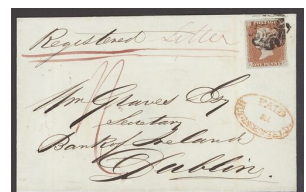 Registered Letter
Wm Graves Esq
Secretary
Bank of Ireland
Dublin.
PAID